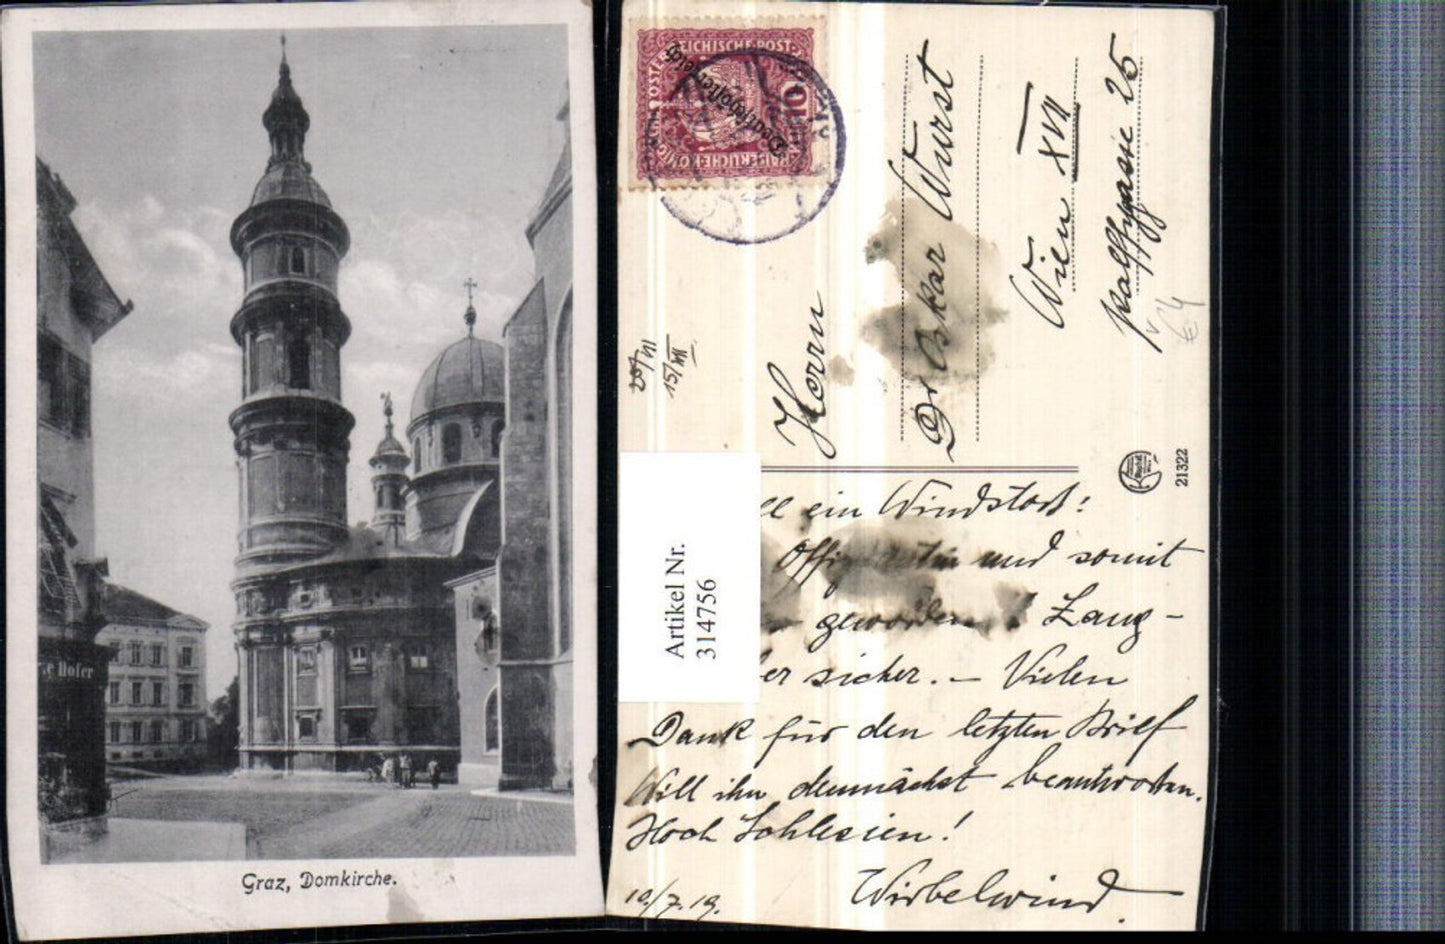 ...e Hofer
Graz, Domkirche.
ÖSTERREICHISCHE·POST·
Deutschösterreich
10
KAISERLICHE·KÖNIG
Herrn
Dr Oskar Wurst
Wien XVII
Palffygasse 25
20/VII
15/VIII.
21322
Artikel Nr.
314756
ll ein Windstoß:
und somit
geworden Lang-
er sicher. – Vielen
Dank für den letzten Brief
Will ihn demnächst beantworten.
Hoch Schlesien!
Wirbelwind.
10./7.19.